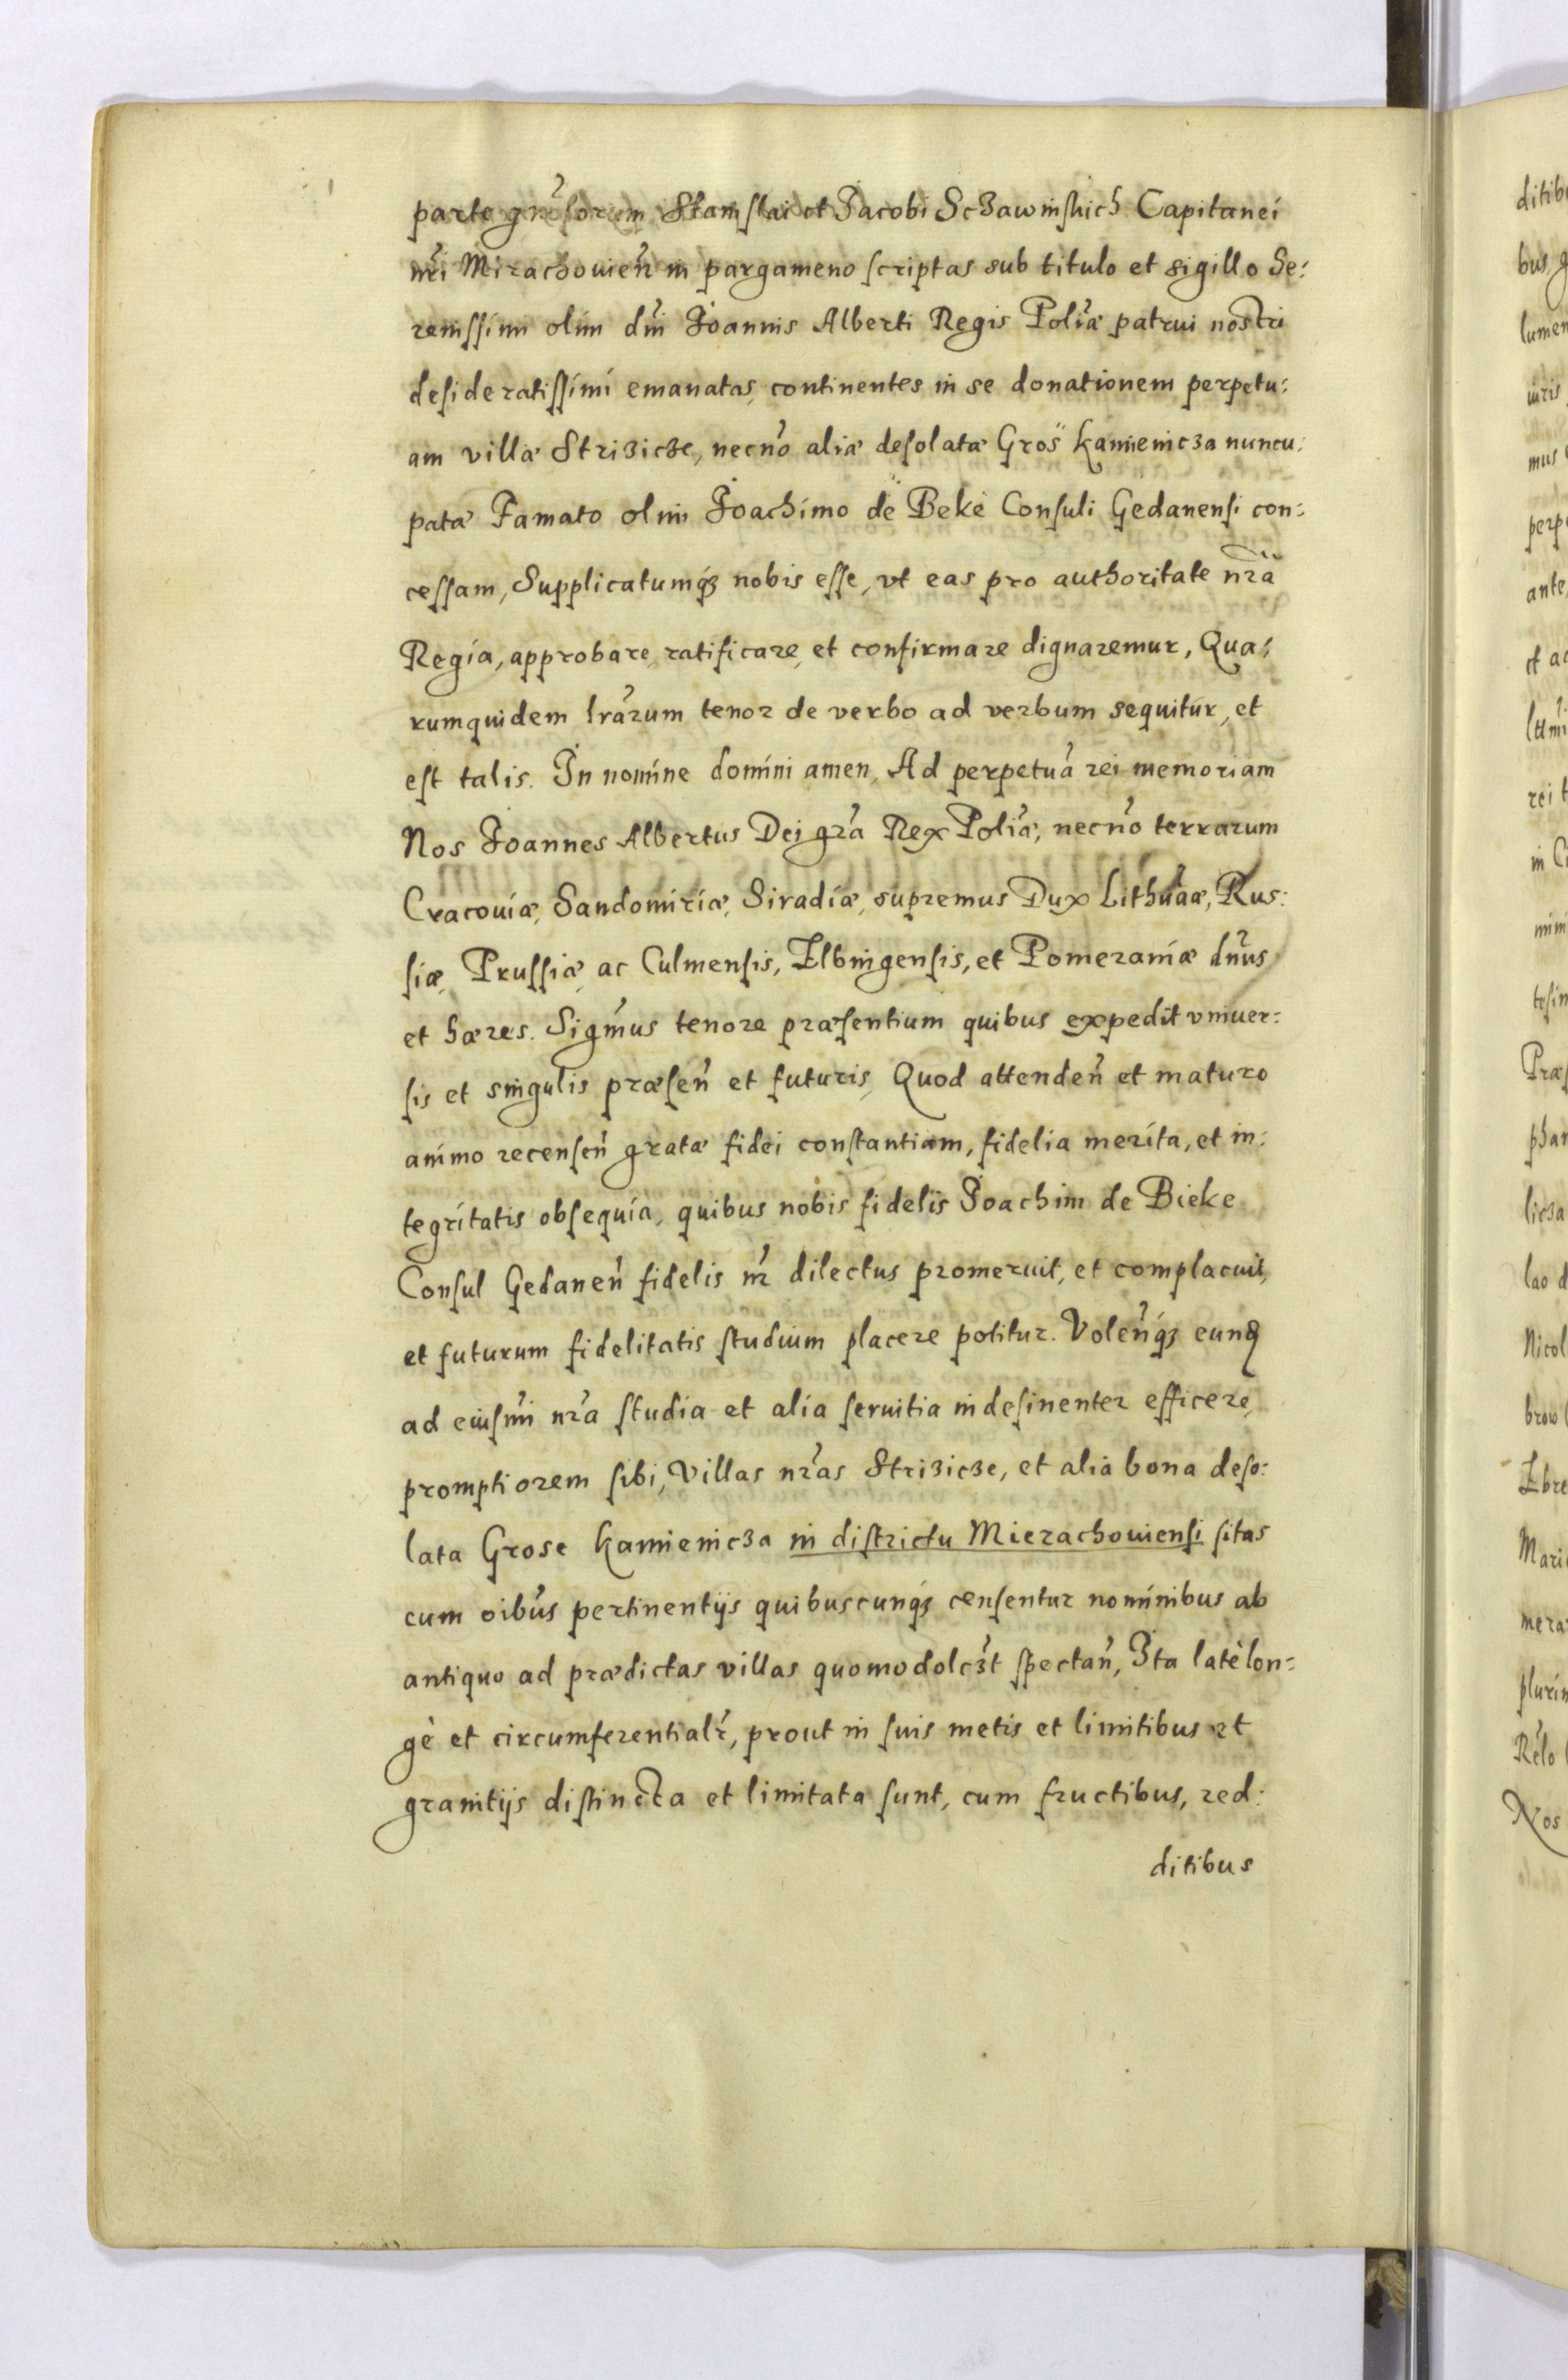 parte gn̄osorum Stanislai et Jacobi Sczawinskich Capitanei
nr̄i Mirachouien̄ in pargameno scriptas sub titulo et sigillo Se:
renissimi olim dn̄i Joannis Alberti Regis Polīæ patrui nostri
desideratissimi emanatas, continentes in se donationem perpetu:
am villæ Strizicze, necnō aliæ desolatæ Gros kamienicza nuncu:
patæ Famato olim Joachimo de Beke Consuli Gedanensi con:
cessam, Supplicatumq́ꝫ nobis esse, vt eas pro authoritate nr̄a
Regia, approbare, ratificare, et confirmare dignaremur, Qua:
rumquidem lr̄arum tenor de verbo ad verbum sequitur, et
est talis. In nomine domini amen, Ad perpetuā rei memoriam
Nos Joannes Albertus Dei gr̄a Rex Polīæ, necnō terrarum
Cracouiæ, Sandomiriæ, Siradiæ, supremus Dux Lithuāæ, Rus:
siæ, Prussiæ, ac Culmensis, Elbingensis, et Pomeraniæ dn̄us
et hæres. Sigm̄us tenore præsentium quibus expedit vniuer:
sis et singulis præsen̄ et futuris, Quod attenden̄ et maturo
animo recensen̄ gratæ fidei constantiam, fidelia merita, et in:
tegritatis obsequia, quibus nobis fidelis Joachim de Bieke
Consul Gedanen̄ fidelis nr̄ dilectus promeruit, et complacuit,
et futurum fidelitatis studium placere potitur. Volen̄q́ꝫ eunꝗ
ad eiusm̄i nr̄a studia et alia seruitia indesinenter efficere,
promptiorem sibi, Villas nr̄as Strizicze, et alia bona deso:
lata Grose kamienicza in districtu Mierachouiensi sitas
cum oib̄us pertinentijs quibuscunq́ꝫ censentur nominibus ab
antiquo ad prædictas villas quomodolcꝫt spectan̄, Ita latè lon:
gè et circumferentialr̄, prout in suis metis et limitibus et
granitijs distincta et limitata sunt, cum fructibus, red:
ditibus